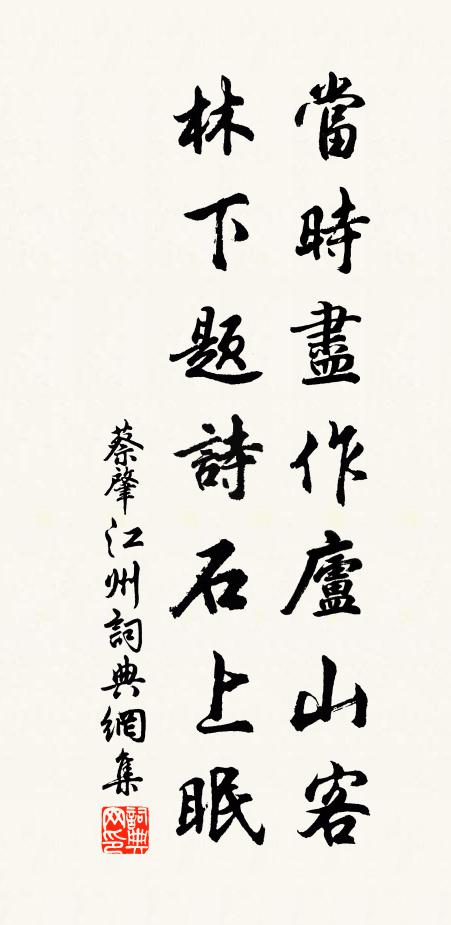 當時盡作廬山客
林下题詩石上眠
蔡肇江州詞典網集
詞典网印